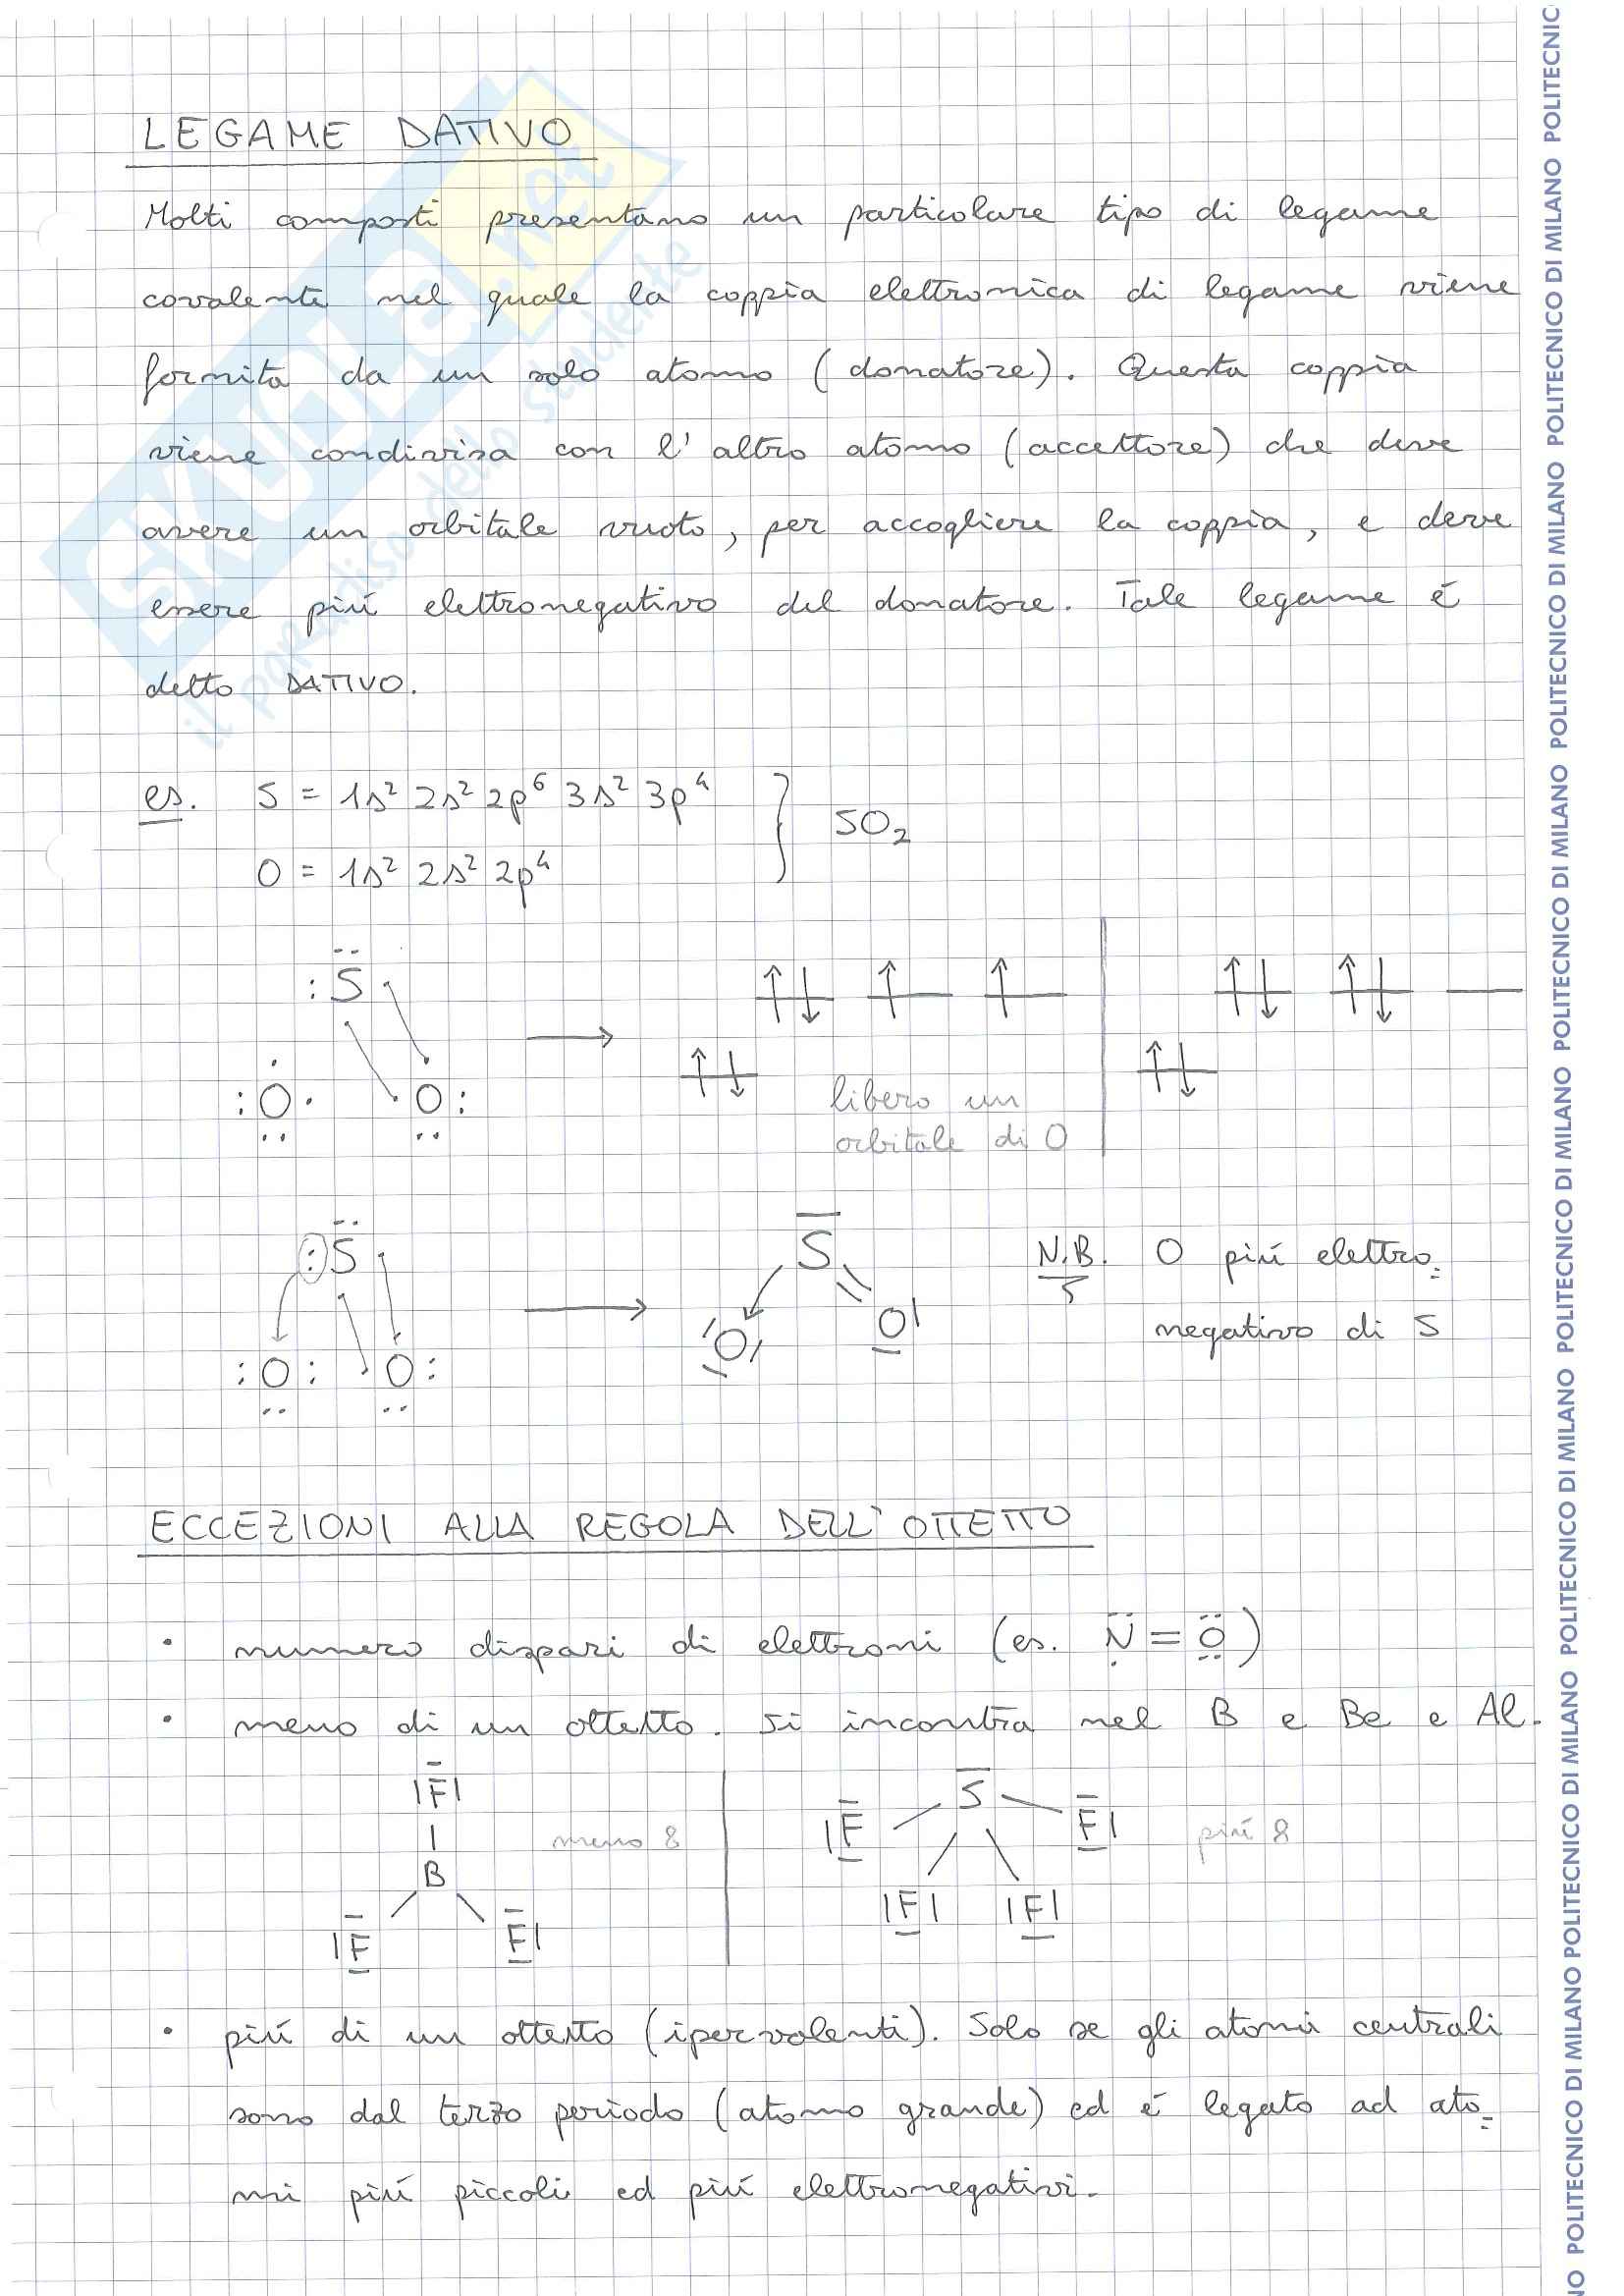 LEGAME DATIVO
Molti composti presentano un particolare tipo di legame
covalente nel quale la coppia elettronica di legame viene
fornita da un solo atomo (donatore). Questa coppia
viene condivisa con l'altro atomo (accettore) che deve
avere un orbitale vuoto, per accogliere la coppia, e deve
essere piú elettronegativo del donatore. Tale legame é
detto DATIVO.
es. S = 1s² 2s² 2p⁶ 3s² 3p⁴
O = 1s² 2s² 2p⁴
SO₂
S
O O
libero un
orbitale di O
S
O O
S
O O
N.B. O piú elettro-
negativo di S
ECCEZIONI ALLA REGOLA DELL'OTTETTO
• numero dispari di elettroni (es. N=O)
• meno di un ottetto. Si incontra nel B e Be e Al.
F
B
F F
meno 8
S
F F
F F
piú 8
• piú di un ottetto (ipervalenti). Solo se gli atomi centrali
sono dal terzo periodo (atomo grande) ed é legato ad ato-
mi piú piccoli ed piú elettronegativi.
SKUOLA.net
il paradiso dello studente
POLITECNICO DI MILANO POLITECNICO DI MILANO POLITECNICO DI MILANO POLITECNICO DI MILANO POLITECNICO DI MILANO POLITECNICO DI MILANO POLITECNICO DI MILANO POLITECNIC